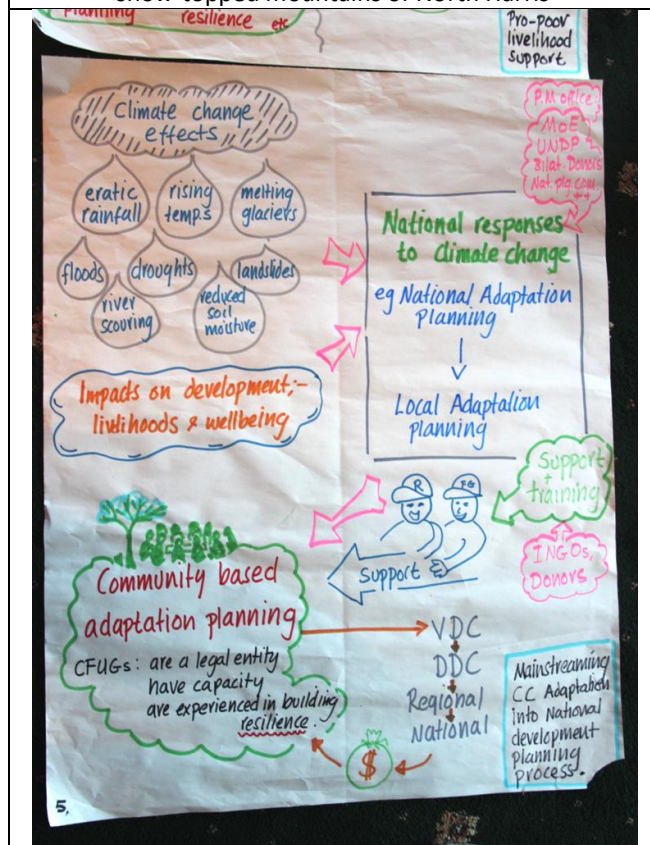 snow-topped mountains of North Harris
planning resilience etc
Pro-poor
livelihood
support.
Climate change
effects
eratic
rainfall
rising
temp.s
melting
glaciers
floods
droughts
landslides
river
scouring
reduced
soil
moisture
Impacts on development;-
livlihoods & wellbeing
P.M office
MoE
UNDP
Bilat. Donors
Nat. plg. com
++
National responses
to climate change
eg National Adaptation
planning
Local Adaptation
planning
Support
+
training
INGOs,
Donors
R FG
Support
Community based
adaptation planning
CFUGs: are a legal entity
have capacity
are experienced in building
resilience.
VDC
DDC
Regional
National
$
Mainstreaming
CC Adaptation
into National
development
planning
process.
5,